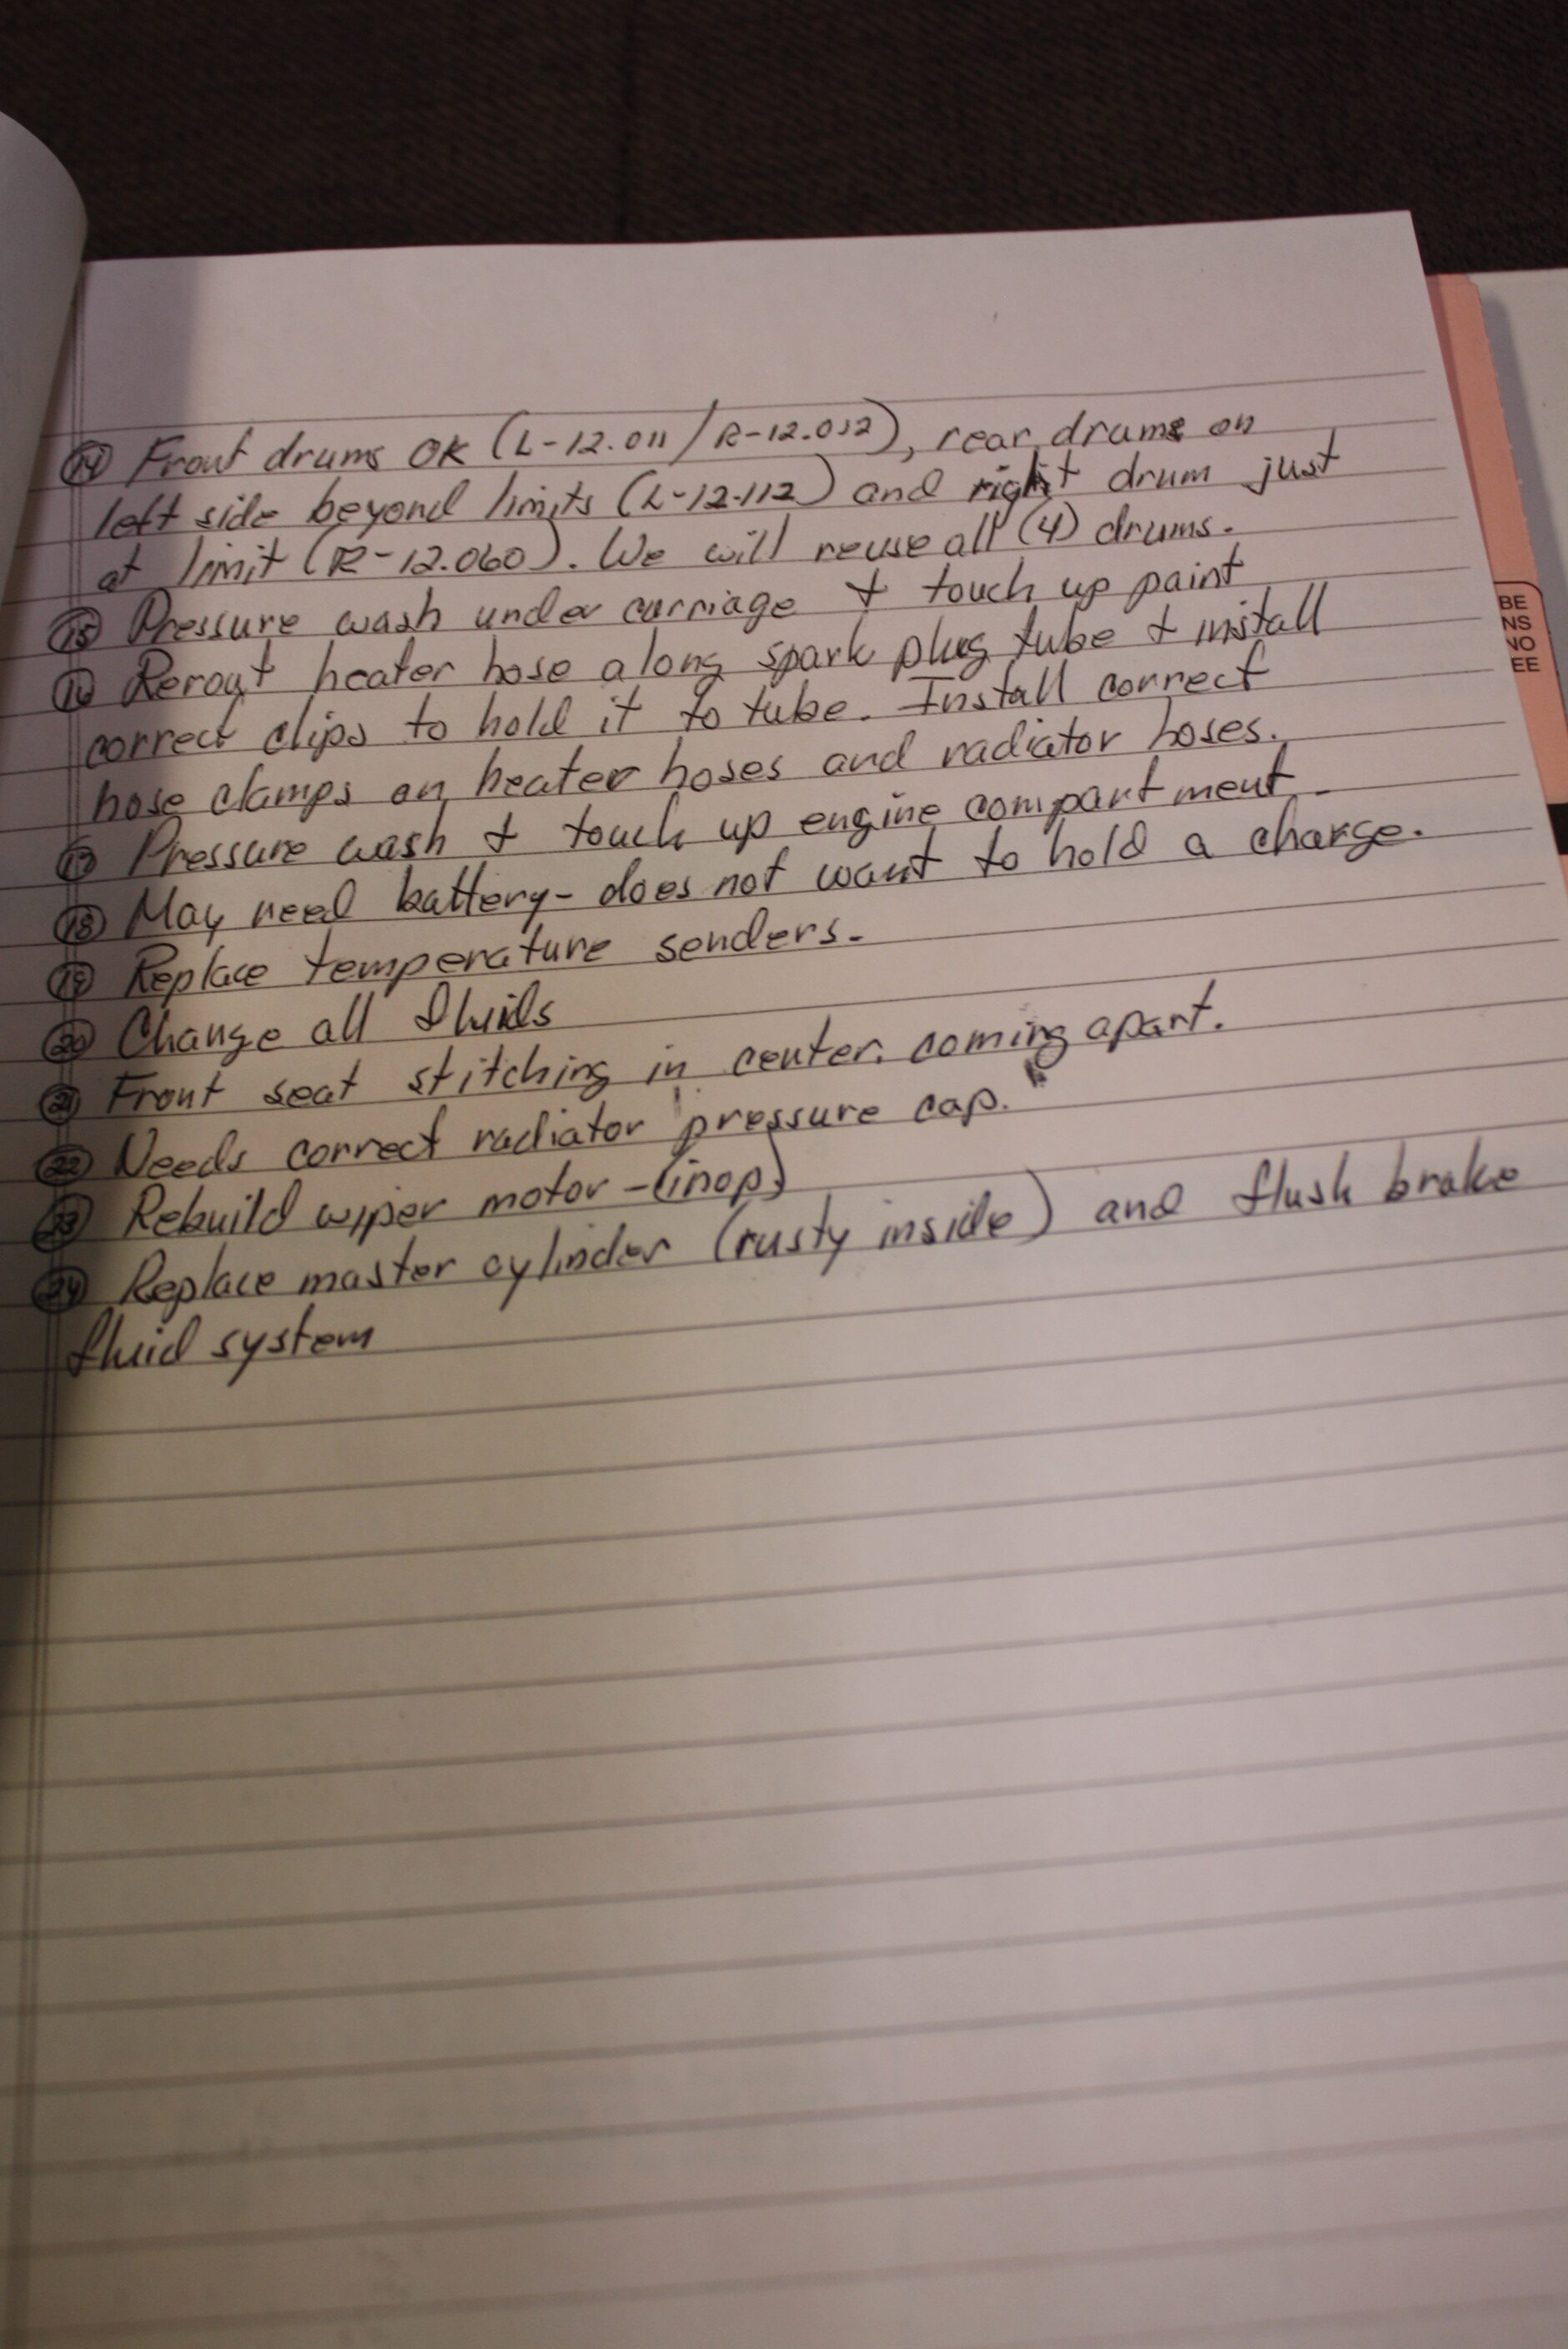 (14) Front drums OK (L-12.011/R-12.032), rear drums on
left side beyond limits (L-12.112) and right drum just
at limit (R-12.060). We will reuse all (4) drums.
(15) Pressure wash under carriage + touch up paint
(16) Rerout heater hose along spark plug tube + install
correct clips to hold it to tube. Install correct
hose clamps on heater hoses and radiator hoses.
(17) Pressure wash + touch up engine compartment.
(18) May need battery - does not want to hold a charge.
(19) Replace temperature senders.
(20) Change all fluids
(21) Front seat stitching in center coming apart.
(22) Needs correct radiator pressure cap.
(23) Rebuild wiper motor - (inop)
(24) Replace master cylinder (rusty inside) and flush brake
fluid system
BE
NS
NO
EE